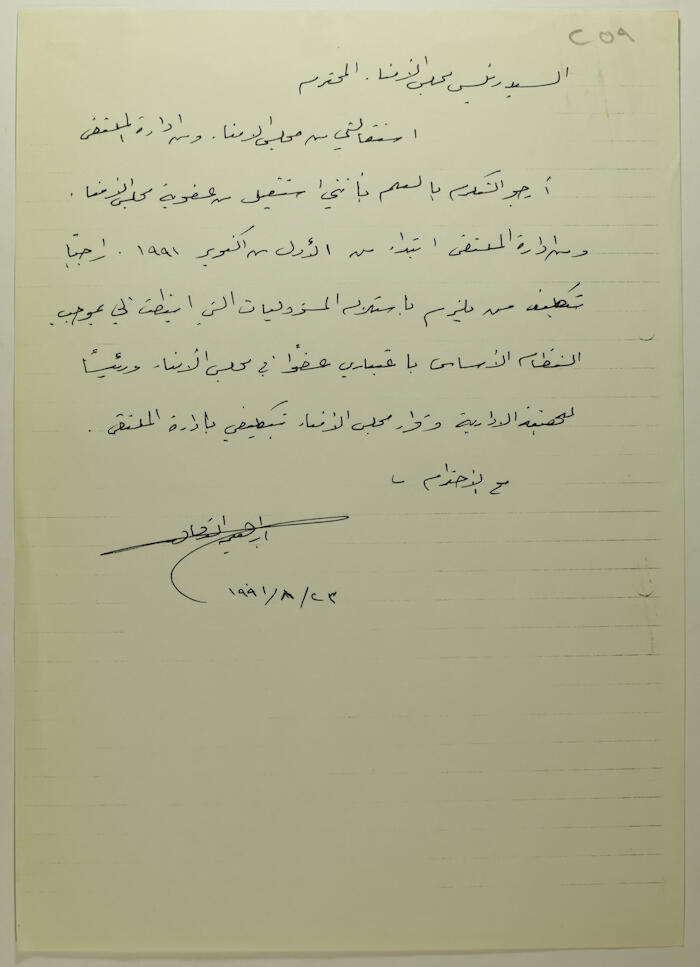 ٢٥٩
السيد رئيس مجلس الأمناء المحترم
استقالتي من مجلس الامناء ومن ادارة الملتقى
أرجو التكرم بالعلم بأنني استقيل من عضوية مجلس الأمناء
ومن ادارة الملتقى ابتداء من الأول من اكتوبر ١٩٩١ . راجيًا
تكليف من يلزم باستلام المسؤوليات التي انيطت بي بموجب
النظام الأساسي باعتباري عضوًا في مجلس الأمناء ورئيسًا
للجنة الادارية وقرار مجلس الأمناء بتكليفي بإدارة الملتقى .
مع الإحترام
ابراهيم
٢٣/٨/١٩٩١